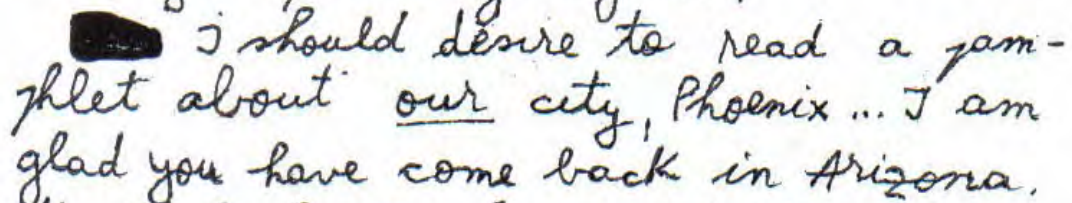 I should desire to read a pam-
phlet about our city, Phoenix... I am
glad you have come back in Arizona.